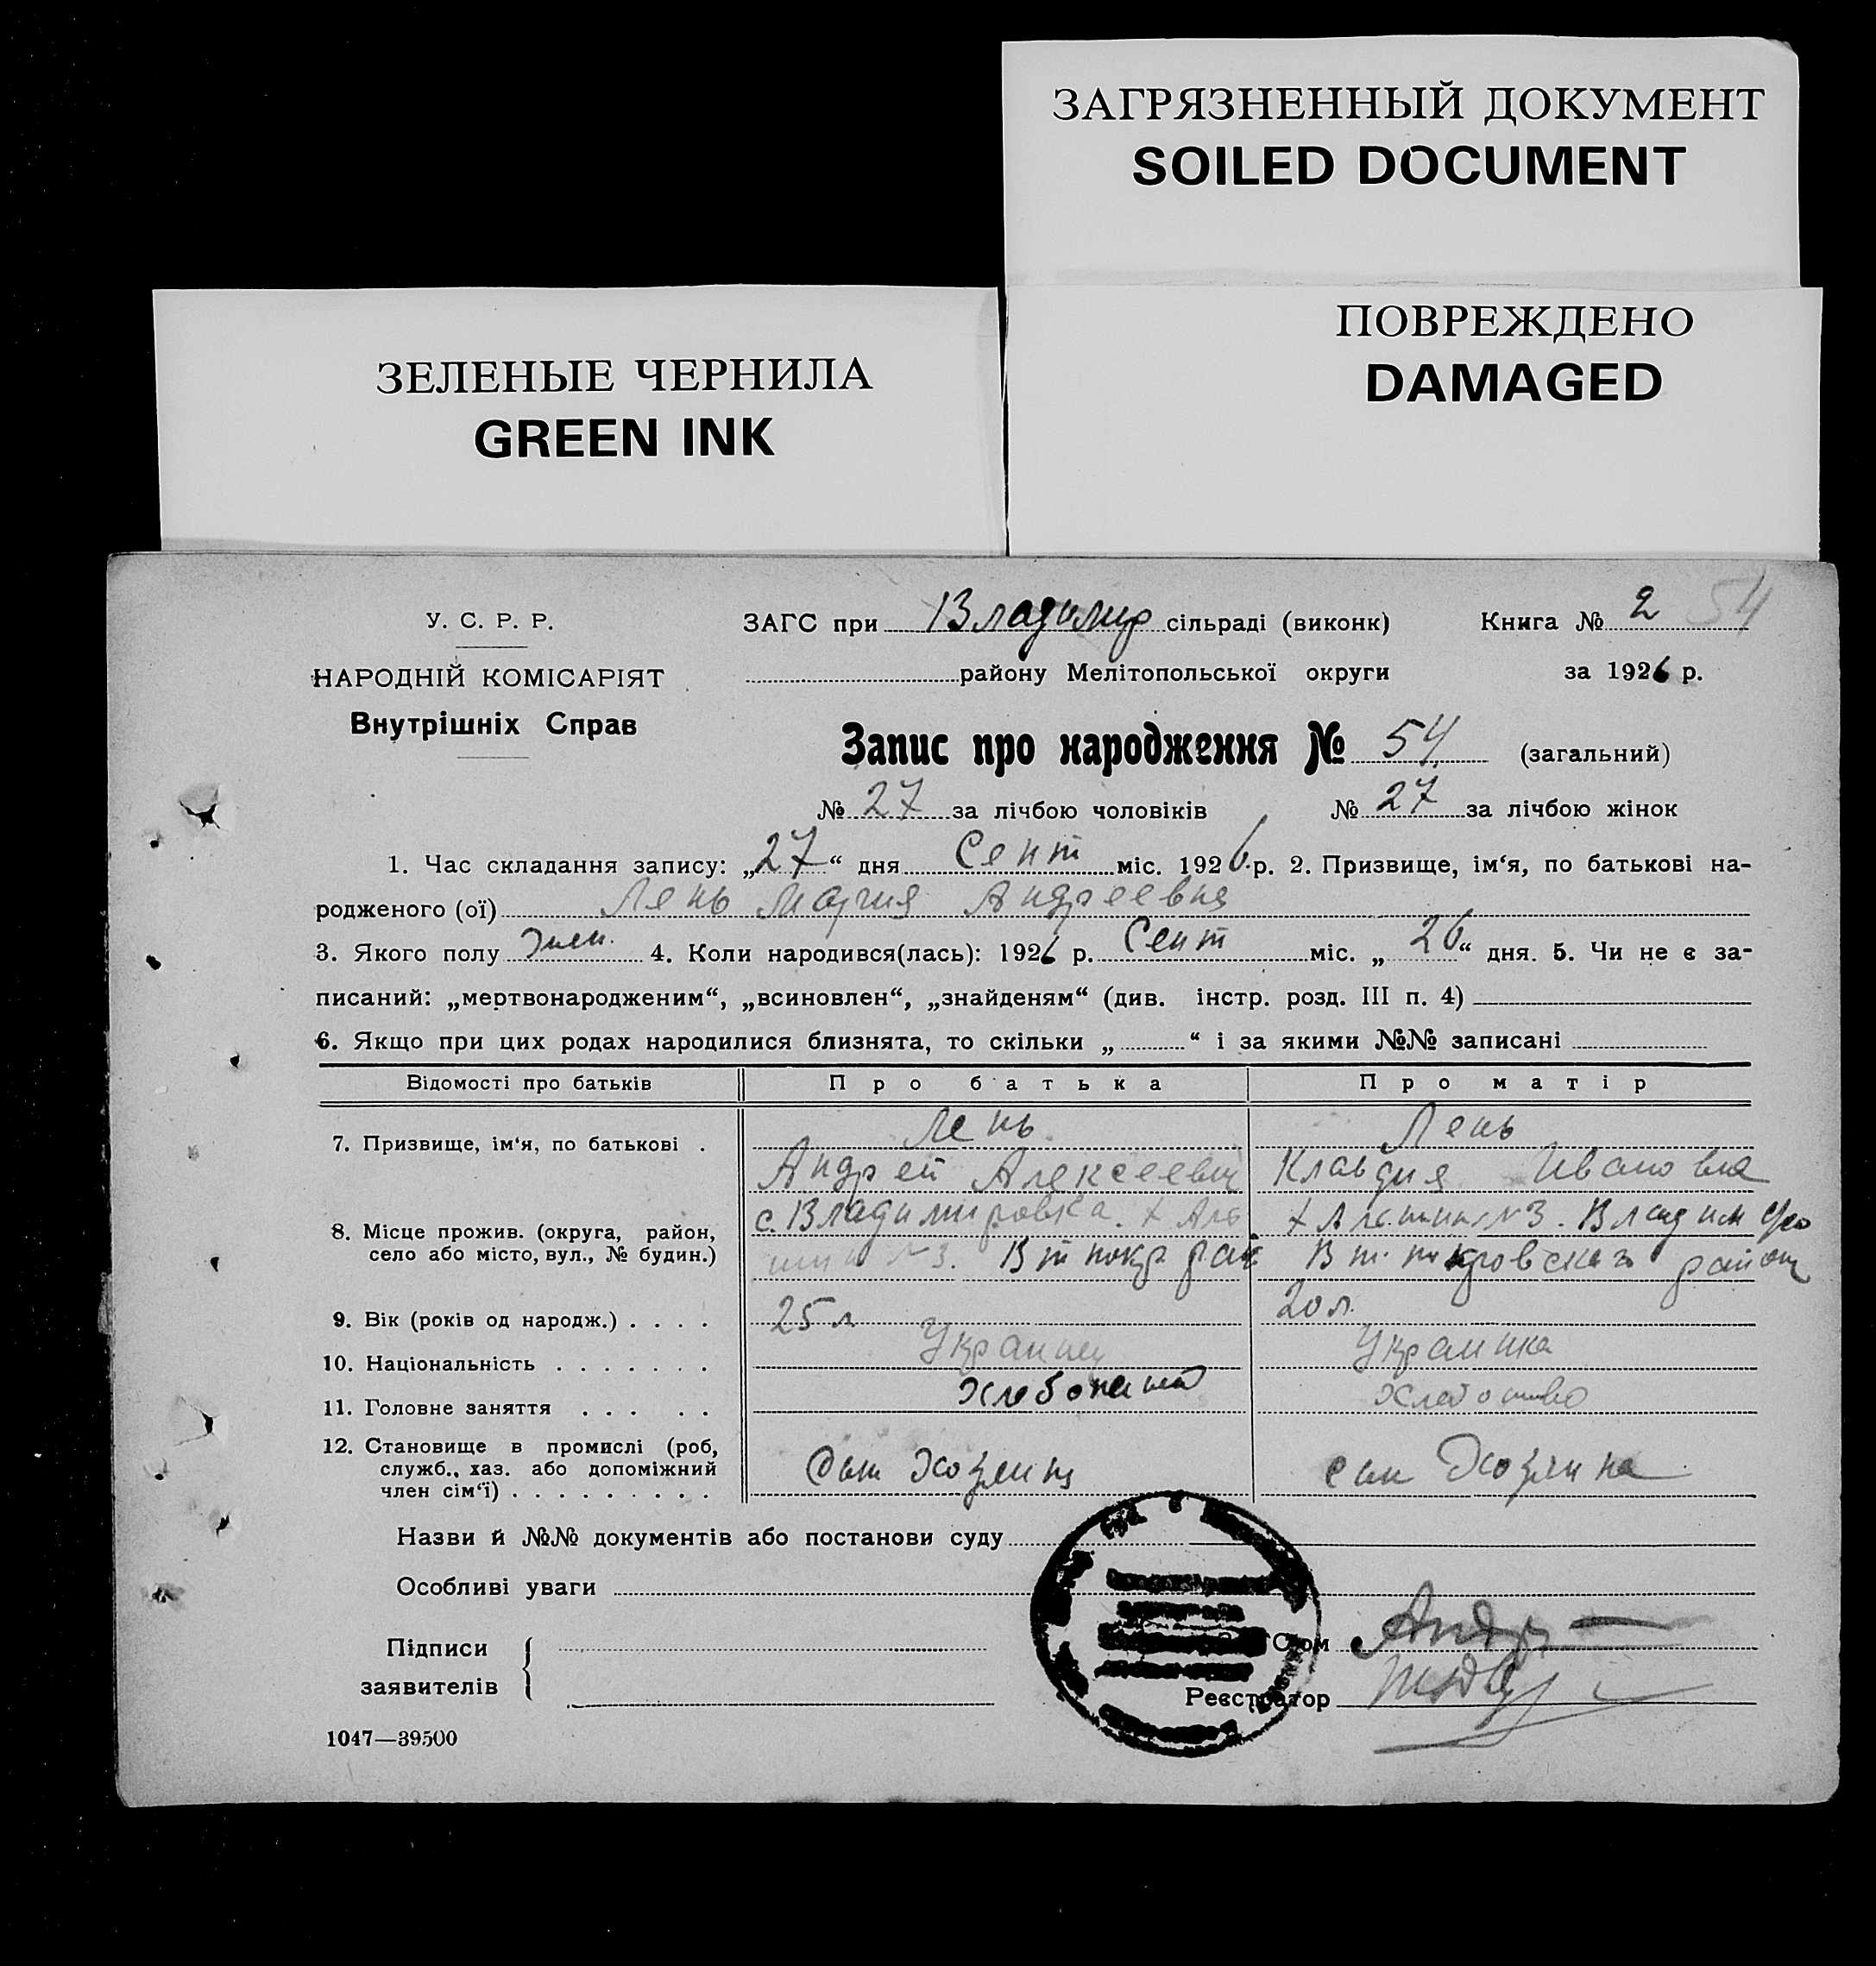 ЗАГРЯЗНЕННЫЙ ДОКУМЕНТ
SOILED DOCUMENT
ПОВРЕЖДЕНО
DAMAGED
ЗЕЛЕНЫЕ ЧЕРНИЛА
GREEN INK
У. С. Р. Р.
НАРОДНІЙ КОМІСАРІЯТ
Внутрішніх Справ
ЗАГС при Владимир сільраді (виконк) Книга № 2 54
району Мелітопольської округи за 1926 р.
Запис про народження № 54 (загальний)
№ 27 за лічбою чоловіків № 27 за лічбою жінок
1. Час складання запису: „27“ дня Сент міс. 1926 р. 2. Призвище, ім‘я, по батькові на-
родженого (ої) Лень Мария Андреевна
3. Якого полу жен. 4. Коли народився(лась): 1926 р. Сент міс. „26“ дня. 5. Чи не є за-
писаний: „мертвонародженим“, „всиновлен“, „знайденям“ (див. інстр. розд. III п. 4)
6. Якщо при цих родах народилися близнята, то скільки „ “ і за якими №№ записані
Відомості про батьків Про батька Про матір
7. Призвище, ім‘я, по батькові . Лень Лень
Андрей Алексеевич Клавдия Ивановна
8. Місце прожив. (округа, район, с. Владимировка. х № 3. Владим
село або місто, вул., № будин.) № 3. рай
9. Вік (років од народж.) . . . . 25 л 20 л.
10. Національність . . . . . . . Украинец Украинка
11. Головне заняття . . . . . Хлебопаш
12. Становище в промислі (роб,
служб., хаз. або допоміжний
член сім‘ї) . . . . . . . . .
Назви й №№ документів або постанови суду
Особливі уваги
Підписи
заявителів
Реєстратор
1047—39500